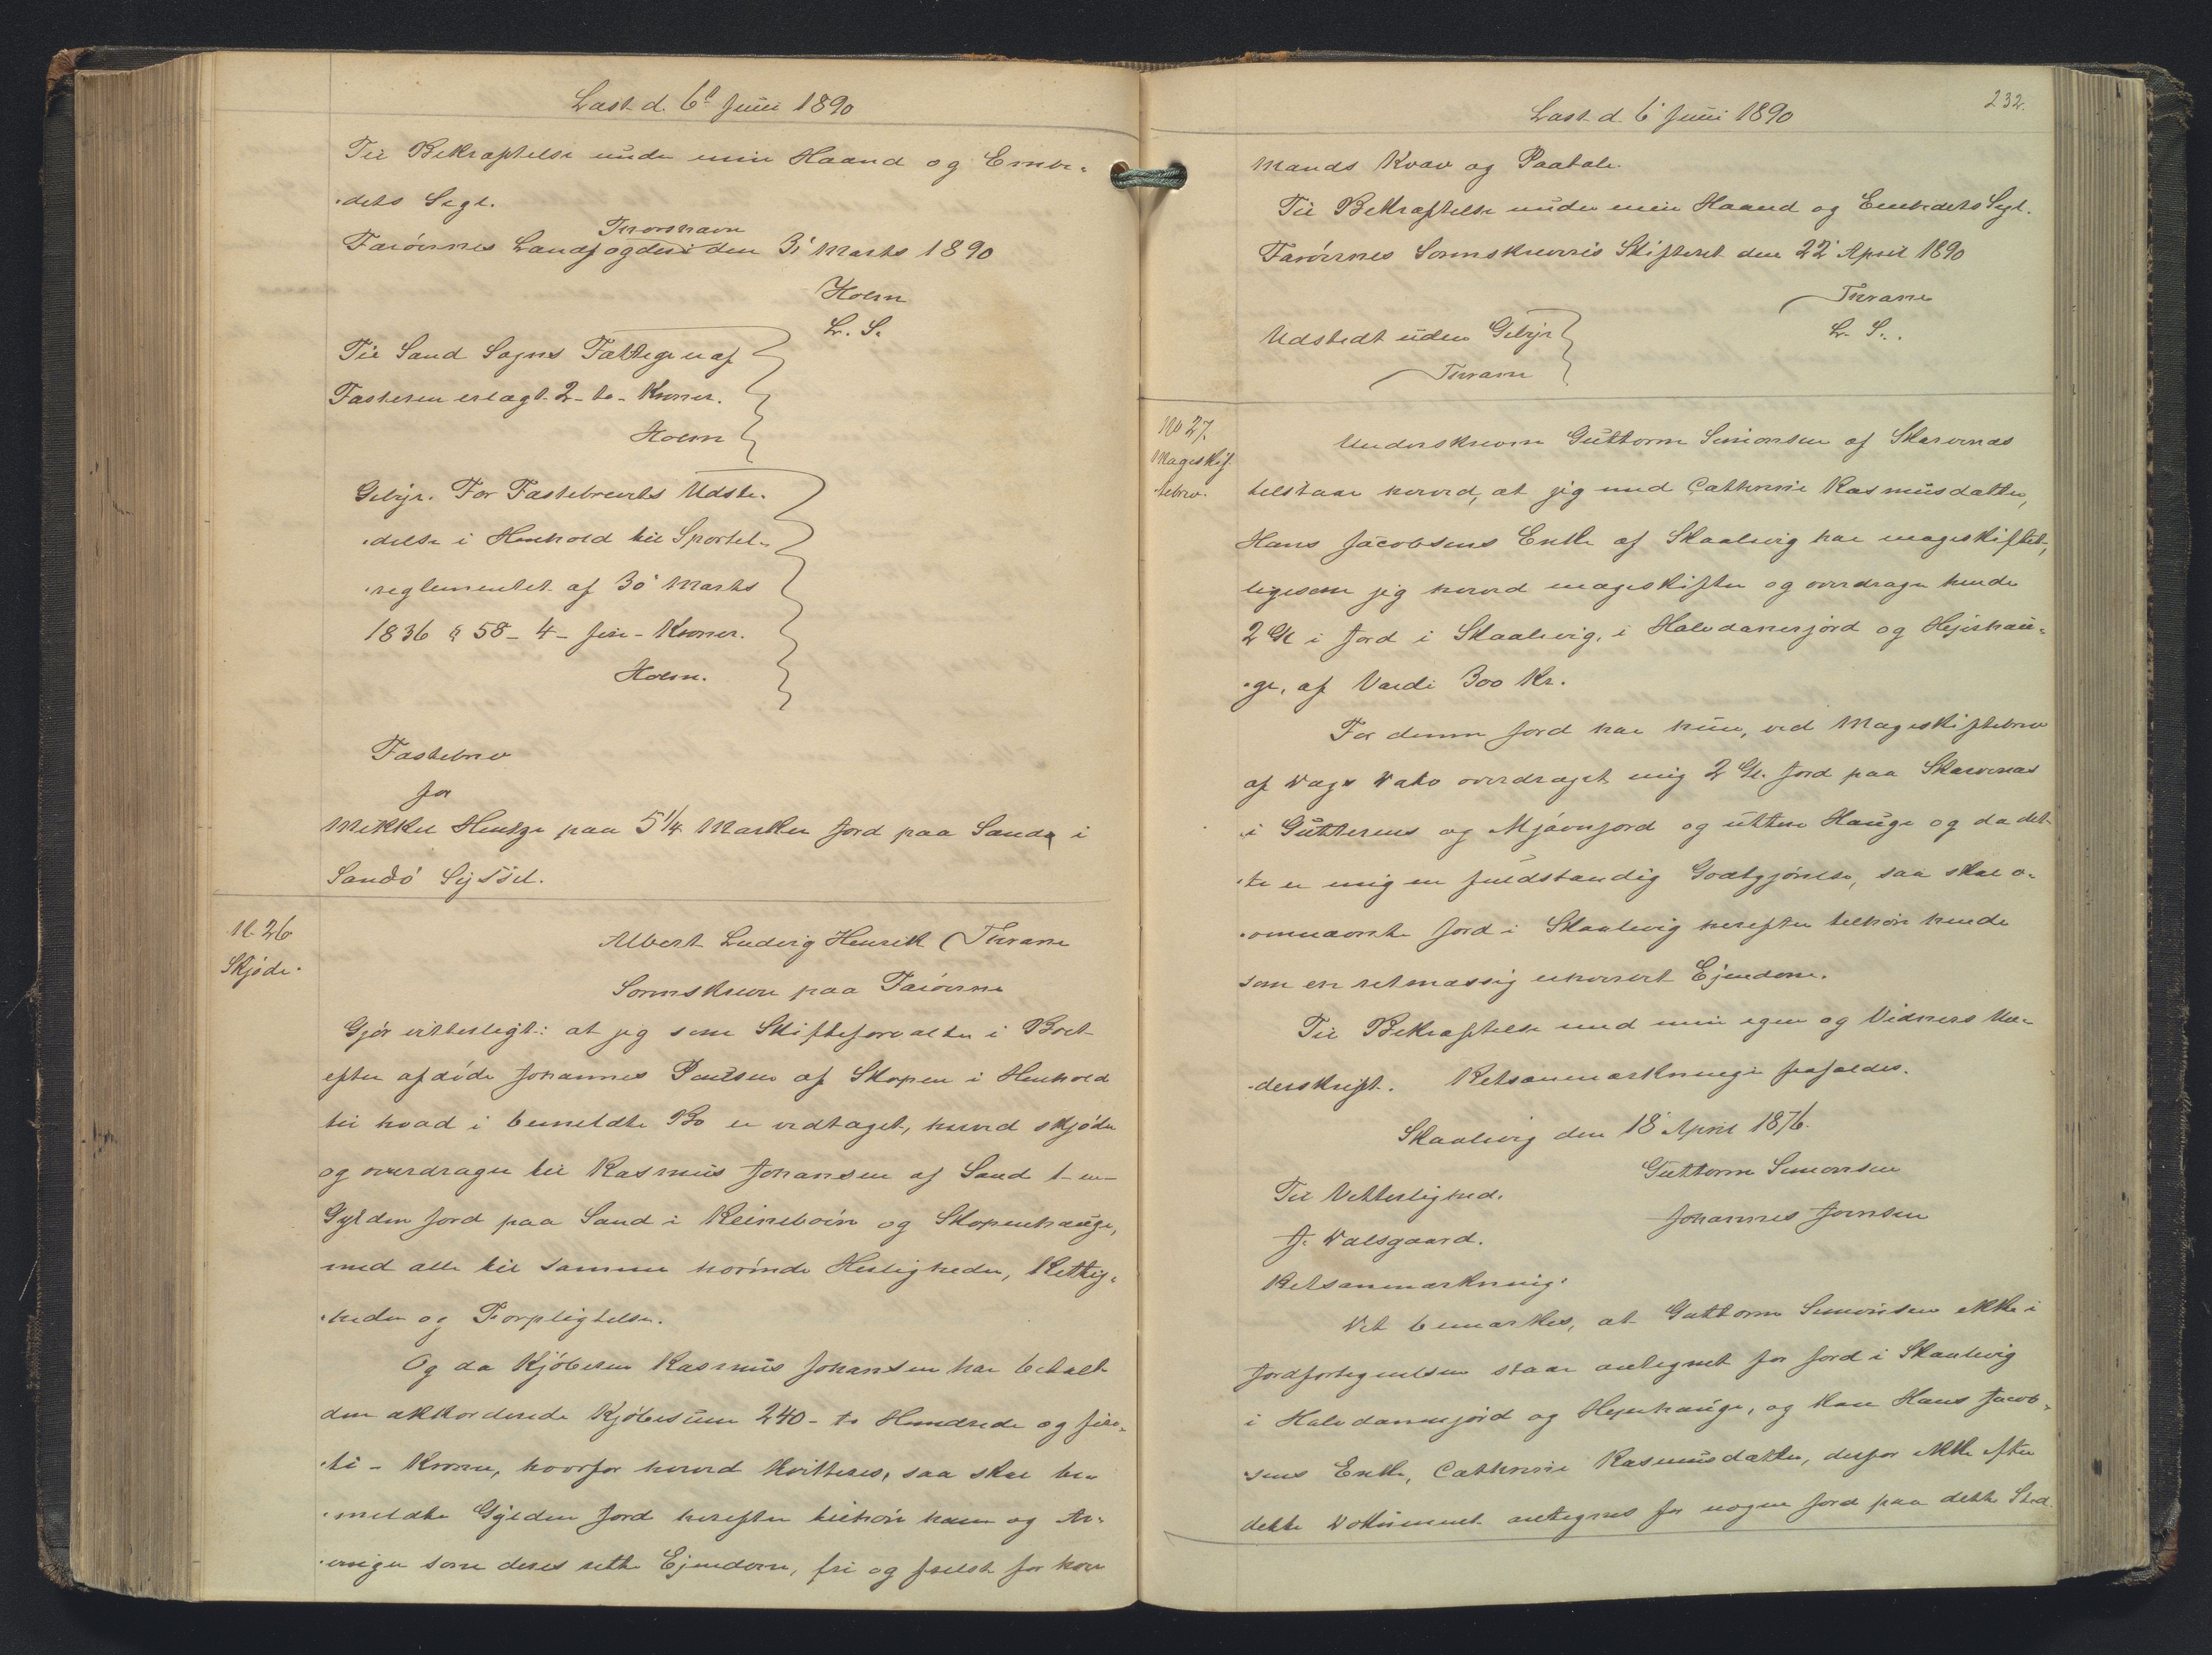 Læst d. 6' Juni 1890
Til Bekræftelse under min Haand og Embe-
-dets Segl.
Thorshavn
Færöernes Landfogderi den 3' Marts 1890
Holm
L. S.
Til Sand Sogns Fattige er af
Fæsteren erlagt 2 - to - Kroner.
Holm
Gebyr. For Fæstebrevets Udste-
-delse i Henhold til Sportel-
-reglementet af 30' Marts
1836 § 58 - 4 - fire - Kroner.
Holm.
Fæstebrev
for
Mikkel Hentze paa 5 1/4 Marker Jord paa Sand i
Sandö Syssel.
N. 26
Skjöde.
Albert Ludvig Henrik Thrane
Sorenskriver paa Færöerne
Gjör vitterligt: at jeg som Skifteforvalter i Boet
efter afdöde Johannes Poulsen af Skopen i Henhold
til hvad i bemeldte Bo er vedtaget, herved skjöder
og overdrager til Rasmus Johansen af Sand 1 - en -
Gylden Jord paa Sand i Reineboin og Skopenhauge,
med alle til samme hörende Herligheder, Rettig-
-heder og Forpligtelser.
Og da Kjöberen Rasmus Johansen har betalt
den akkorderede Kjöbesum 240 - to Hundrede og fire-
-ti - Kroner, hvorfor herved kvitteres, saa skal be-
-meldte Gylden Jord herefter tilhöre ham og Ar-
-vinger som deres rette Ejendom, fri og frelst for hver
Læst d. 6' Juni 1890
232.
Mands Krav og Paatale.
Til Bekræftelse under min Haand og Embedets Segl.
Færöernes Sorenskriveris Skifteret den 22' April 1890
Thrane
L. S.
Udstedt uden Gebyr
Thrane
No 27.
Mageskif-
tebrev.
Underskrevne Guttorm Simonsen af Skarvenæs
tilstaar herved, at jeg med Cathrine Rasmusdatter,
Hans Jacobsens Enke af Skaalevig har mageskiftet,
ligesom jeg herved mageskifter og overdrager hende
2 Gl i Jord i Skaalevig, i Halvdanerjord og Hejerhau-
-ge, af Værdi 300 Kr.
For denne Jord har hun, ved Mageskiftebrev
af Dags Dato overdraget mig 2 Gl. Jord paa Skarvenæs
i Gutterens og Mjávnjord og uttere Hauge og da det-
-te er mig en fuldstændig Godtgjörelse, saa skal o-
-vennævnte Jord i Skaalevig herefter tilhöre hende
som en retmæssig erhvervet Ejendom.
Til Bekræftelse med min egen og Vidners Un-
-derskrift. Retsanmærkninger frafaldes.
Skaalevig den 18' April 1876.
Guttorm Simonsen
Til Vitterlighed.
Johannes Joensen
J. Dalsgaard.
Retsanmærkning:
Det bemærkes, at Guttorm Simonsen ikke i
Jordfortegnelsen staar antegnet for Jord i Skaalevig
i Halvdannerjord og Hejerhauge, og kan Hans Jacob-
-sens Enke, Cathrine Rasmusdatter, derfor ikke efter
dette Dokument antegnes for nogen Jord paa dette Sted.